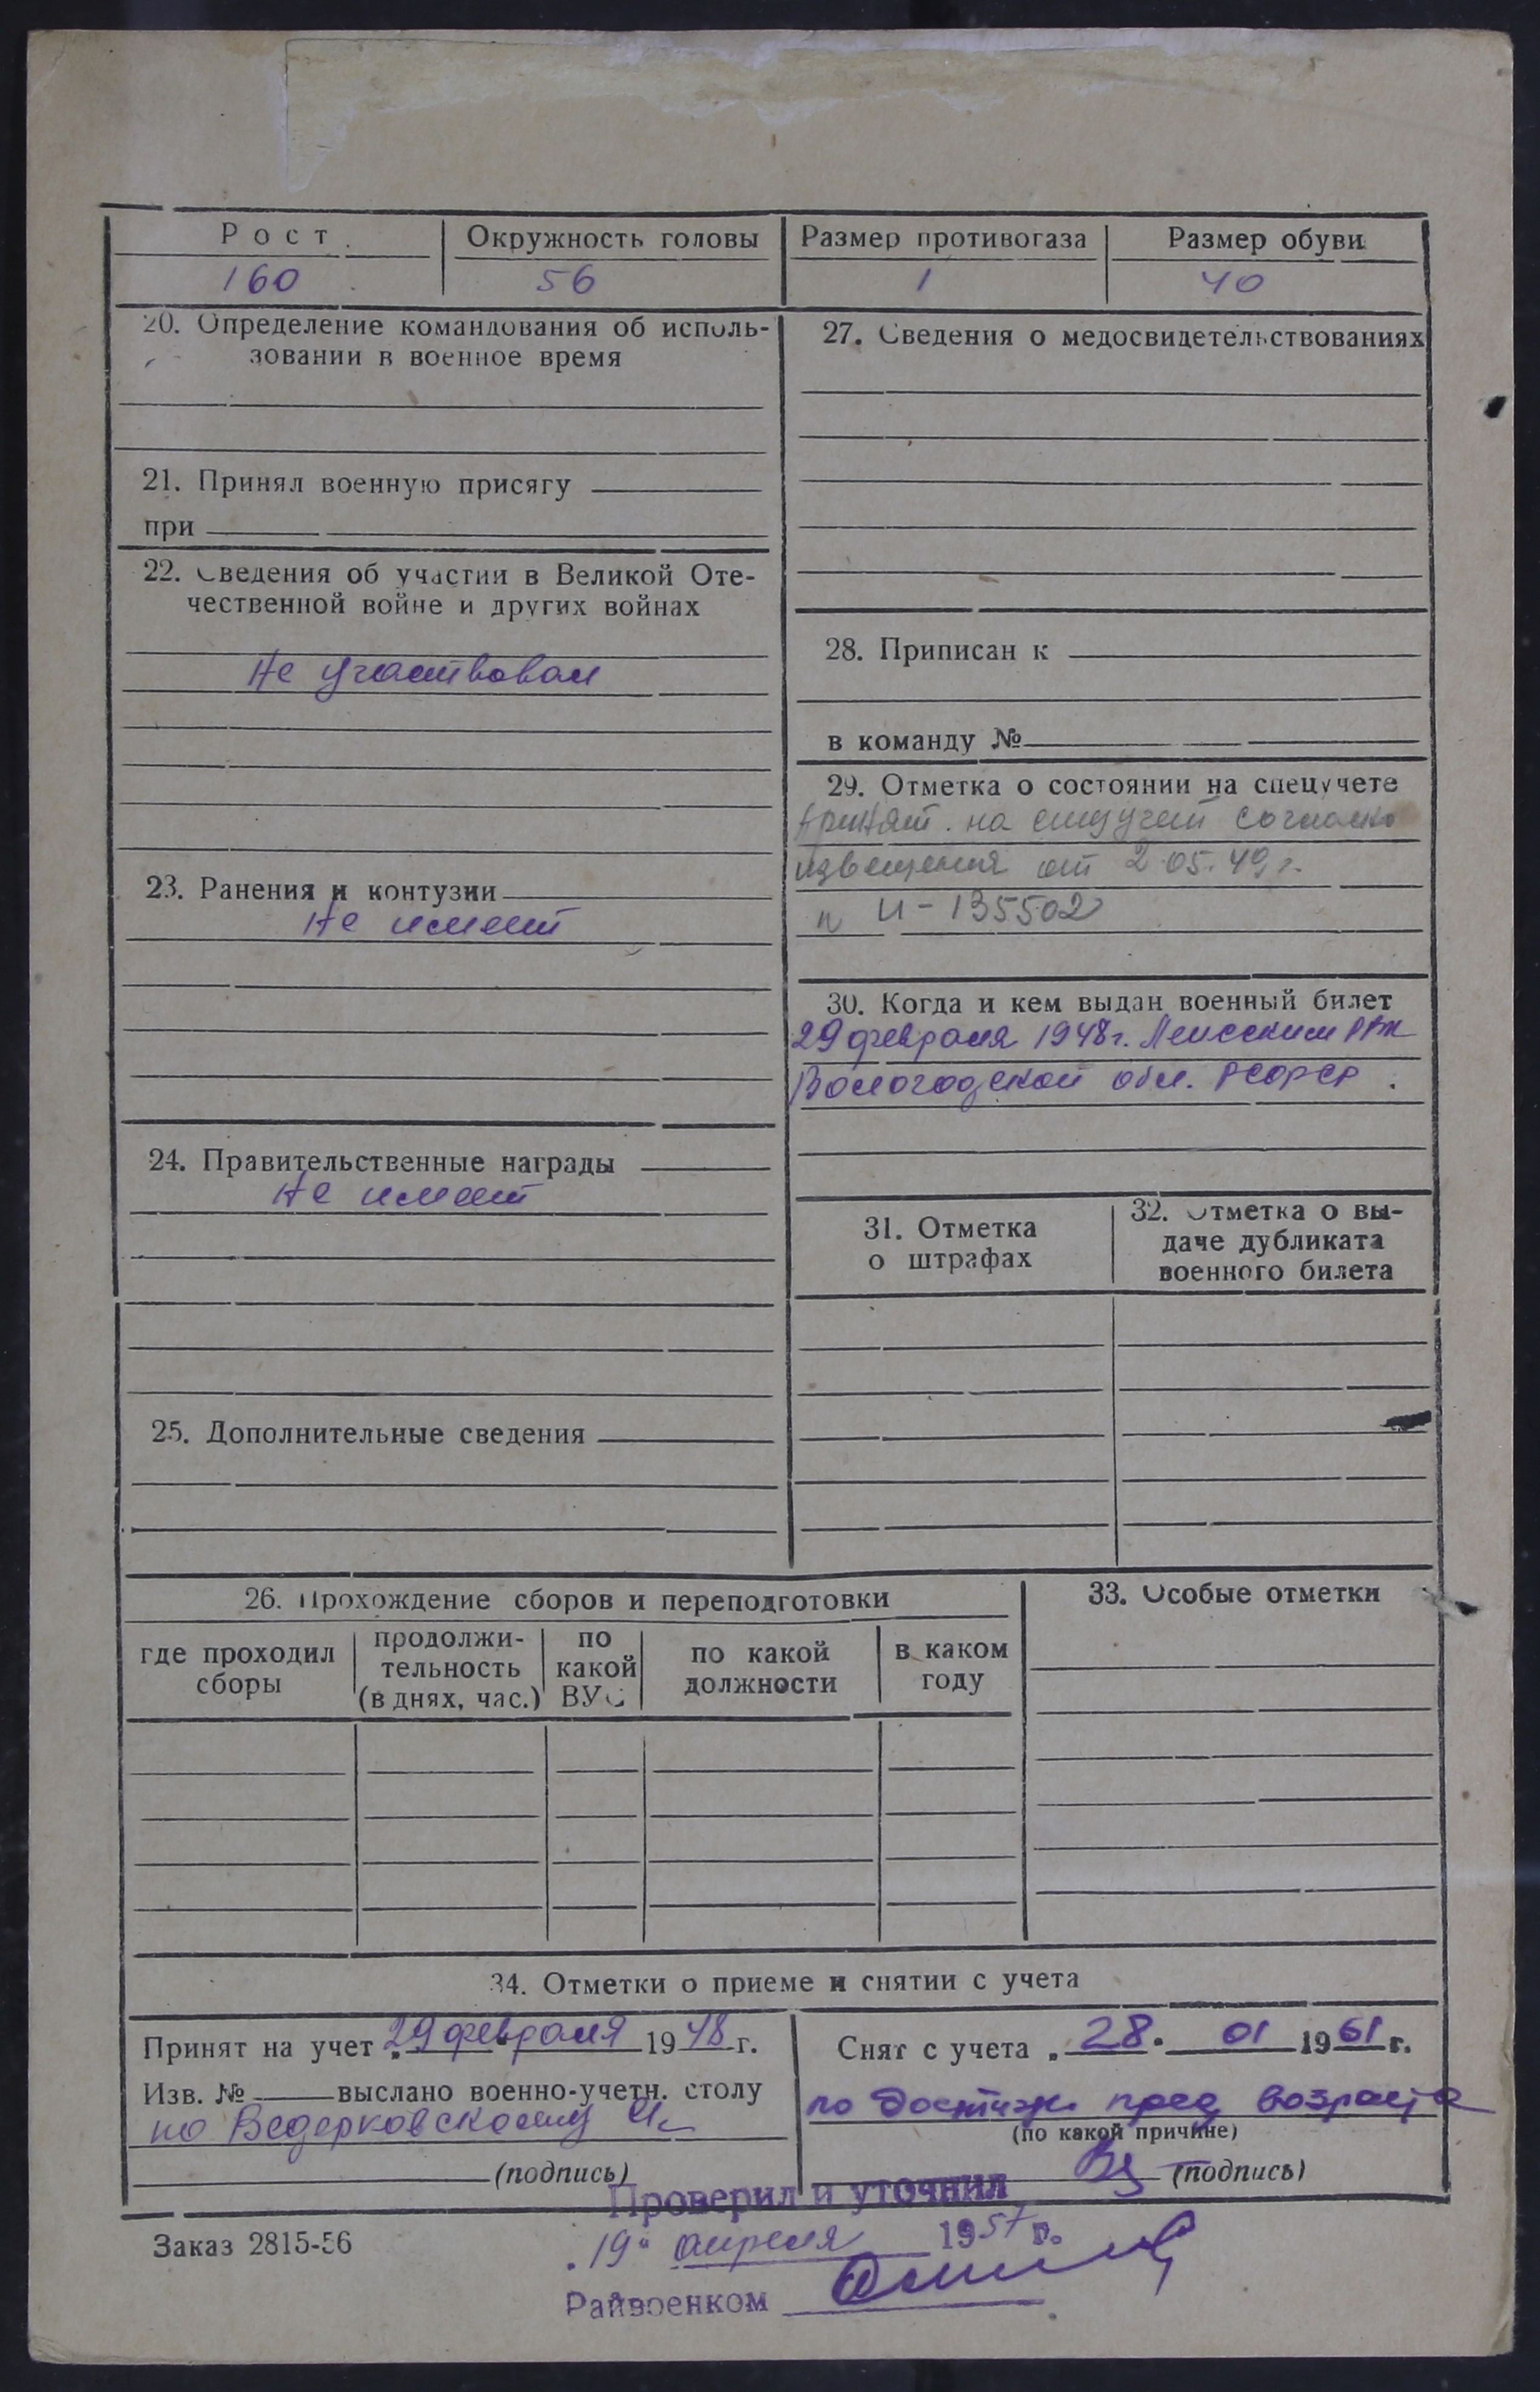 Рост Окружность головы Размер противогаза Размер обуви
160 56 1 40
20. Определение командования об исполь-
зовании в военное время
21. Принял военную присягу
при
22. Сведения об участии в Великой Оте-
чественной войне и других войнах
Не участвовал
23. Ранения и контузии
Не имеет
24. Правительственные награды
Не имеет
25. Дополнительные сведения
27. Сведения о медосвидетельствованиях
28. Приписан к
в команду №
29. Отметка о состоянии на спецучете
Принят на спецучет согласно
извещения от 2.05.49 г.
И-135502
30. Когда и кем выдан военный билет
29 февраля 1948 г.
Вологодской обл. РСФСР.
31. Отметка
о штрафах
32. Отметка о вы-
даче дубликата
военного билета
26. Прохождение сборов и переподготовки
где проходил
сборы
продолжи-
тельность
(в днях, час.)
по
какой
ВУС
по какой
должности
в каком
году
33. Особые отметки
34. Отметки о приеме и снятии с учета
Принят на учет „29 февраля 1948 г.
Изв. № выслано военно-учетн. столу
по Ведерковскому
(подпись)
Снят с учета „28" 01 1961 г.
по достиж. пред возраста
(по какой причине)
(подпись)
Проверил и уточнил
„19" апреля 1957 г.
Райвоенком
Заказ 2815-56